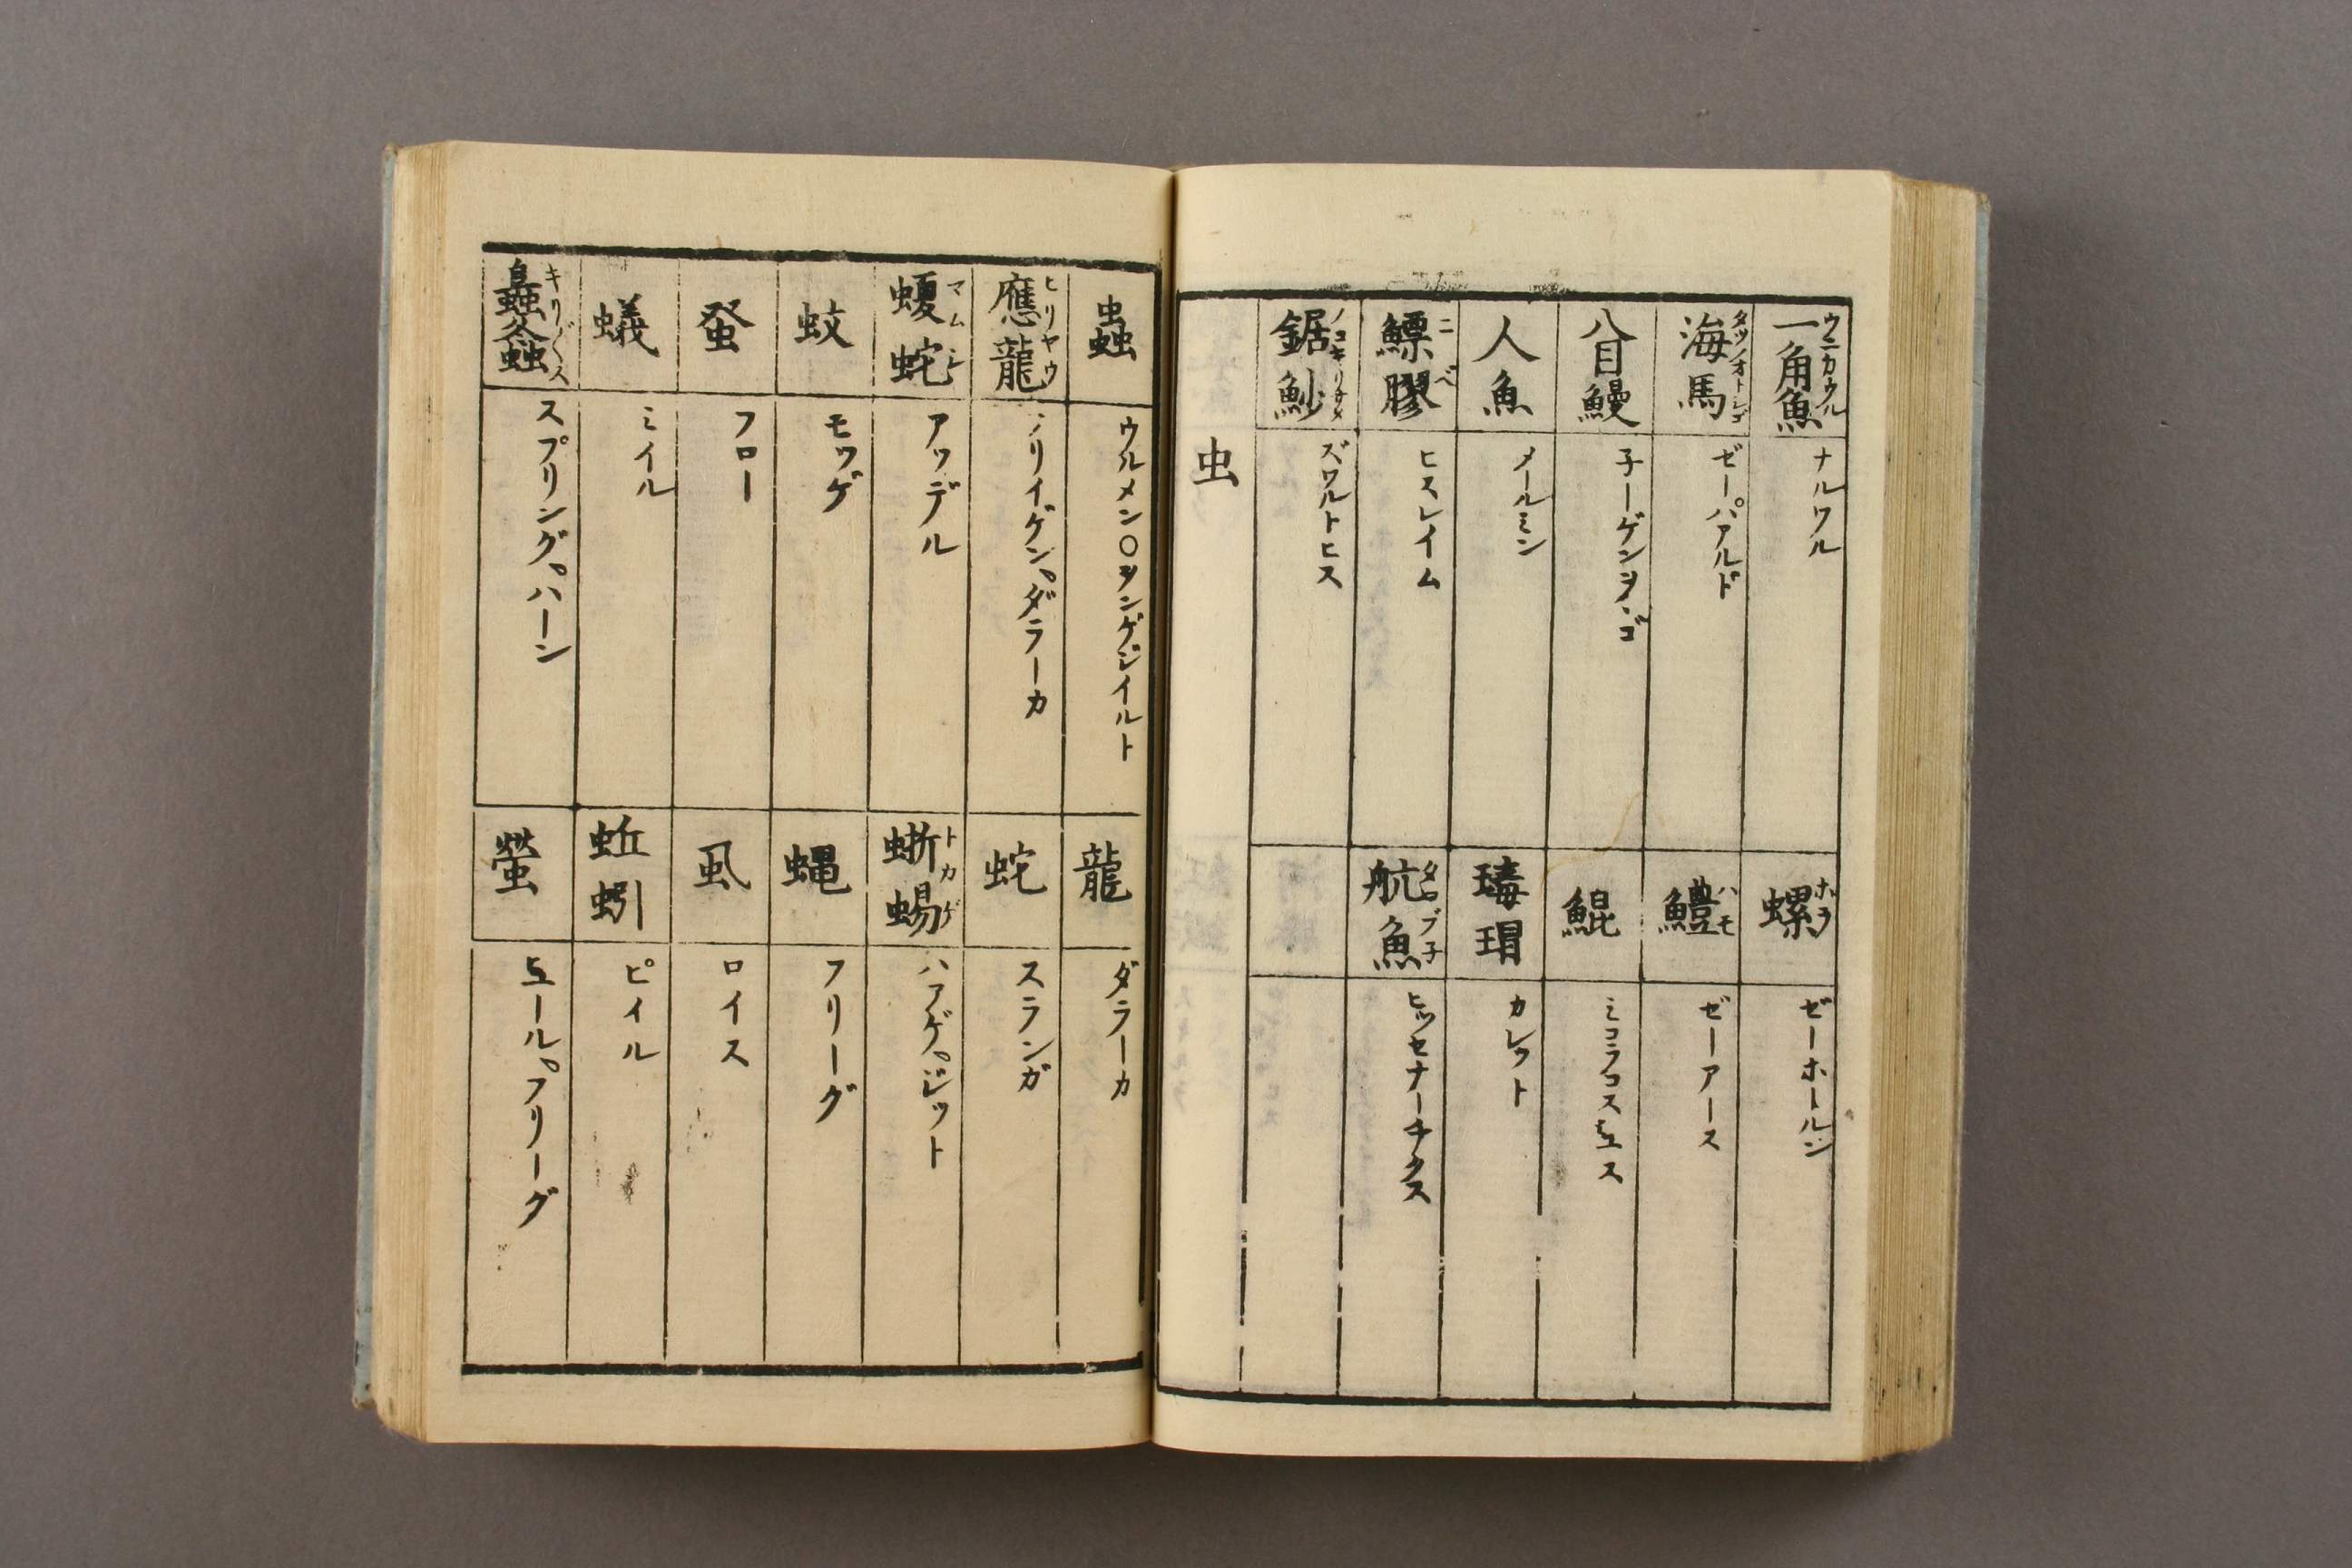 一角魚 ウニカウル
ナルワル
螺 ホラ
ゼーホールン
海馬 タツノオトシゴ
ゼーパアルド
鱧 ハモ
ゼーアース
八目鰻
子ーゲンヲヽゴ
鯤
ミコラコスヒエス
人魚
メールミン
瑇瑁
カレット
鰾膠 ニベ
ヒスレイム
魧魚 タコブ子
ヒッセナーチクス
鋸魦 ノコキリサメ
ズワルトヒス
虫
蟲
ウルメン〇ヲンゲジイルト
龍
ダラーカ
應龍 ヒリヤウ
フリイゲン。ダラーカ
蛇
スランガ
蝮蛇 マムシ
アッデル
蜥蜴 トカゲ
ハアゲ。ジット
蚊
モッゲ
蝿
フリーグ
蚤
フロー
虱
ロイス
蟻
ミイル
蚯蚓
ピイル
螽 キリ〴〵ス
スプリング。ハーン
蛍
ヒュール。フリーグ